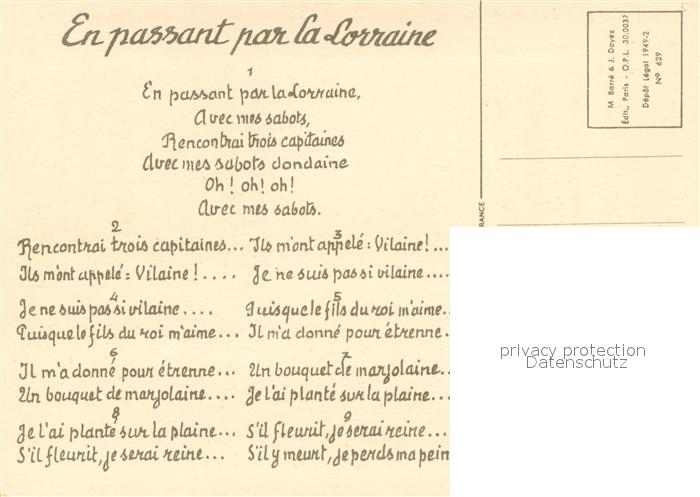 En passant par la Lorraine
1
En passant par la Lorraine,
Avec mes sabots,
Rencontrai trois capitaines
Avec mes sabots dondaine
Oh ! oh ! oh !
Avec mes sabots.
2
Rencontrai trois capitaines...
Ils m'ont appelé : Vilaine !....
3
Ils m'ont appelé : Vilaine !...
Je ne suis pas si vilaine....
4
Je ne suis pas si vilaine....
Puisque le fils du roi m'aime...
5
Puisque le fils du roi m'aime..
Il m'a donné pour étrenne..
6
Il m'a donné pour étrenne...
Un bouquet de marjolaine....
7
Un bouquet de marjolaine..
Je l'ai planté sur la plaine...
8
Je l'ai planté sur la plaine...
S'il fleurit, je serai reine...
9
S'il fleurit, je serai reine...
S'il y meurt, je perds ma pein
M Barré & J. Dayez
Édit., Paris - O.P.L. 30.0037
Dépôt Légal 1949-2
N° 629
RANCE
privacy protection
Datenschutz